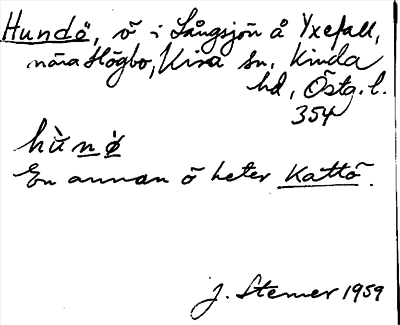 Hundö, ö i Långsjön å Yxefall,
nära Högbo, Kisa sn, Kinda
hd, Östg. l.
354
hùnø
En annan ö heter Kattö.
J. Stemer 1959